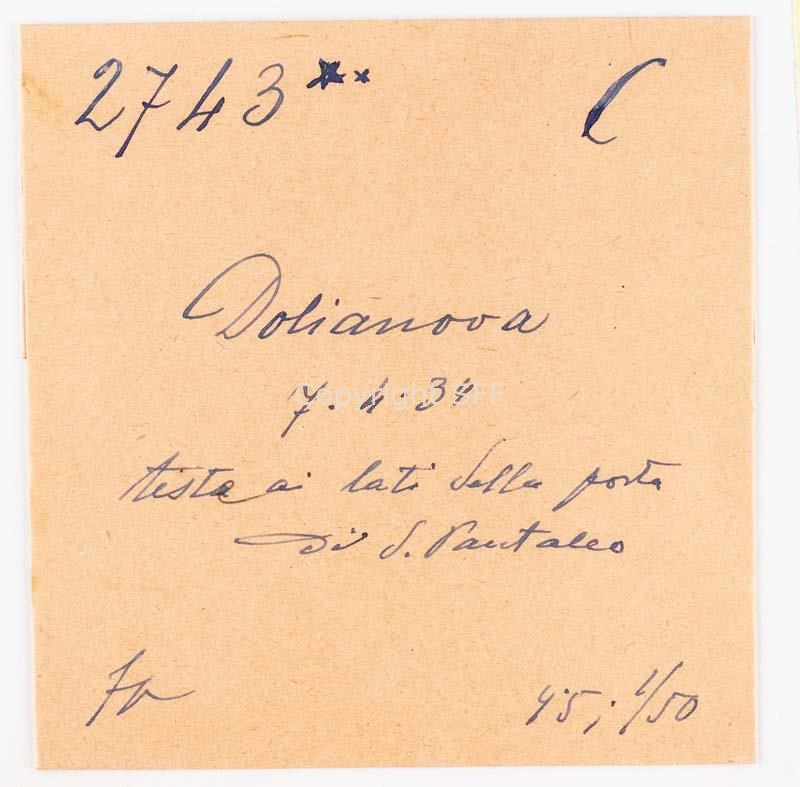 2743** C
Dolianova
7.4.34
Copyright SFF
testa ai lati della porta
di S. Pantaleo
45; 1/50